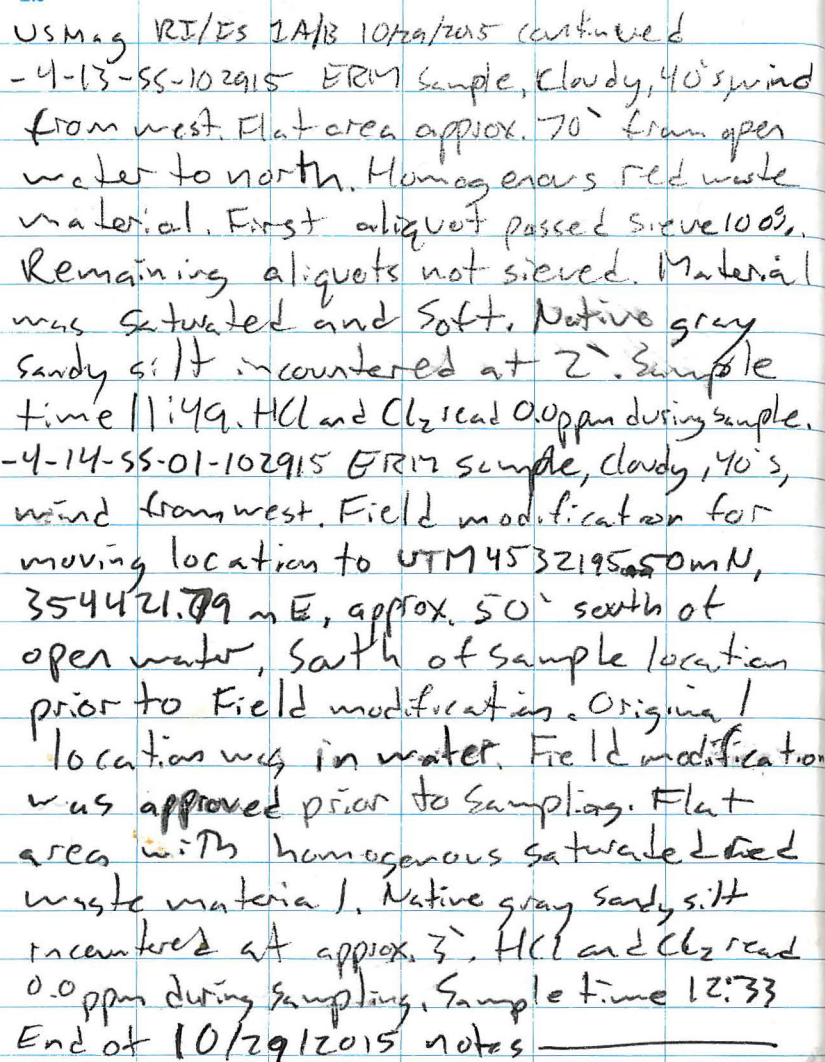 USMag RI/FS 1A/B 10/29/2015 continued
-4-13-SS-102915 ERM Sample, Cloudy, 40's, wind
from west. Flat area approx. 70` from open
water to north. Homogenous red waste
material. First aliquot passed sieve 100%.
Remaining aliquots not sieved. Material
was saturated and soft. Native gray
sandy silt incountered at 2`. Sample
time 11:49. HCl and Cl₂ read 0.0ppm during sample.
-4-14-SS-01-102915 ERM sample, cloudy, 40's,
wind from west. Field modification for
moving location to UTM 4532195.50mN,
354421.79 mE, approx. 50` south of
open water, South of sample location
prior to Field modification. Original
location was in water. Field modification
was approved prior to sampling. Flat
area with homogenous saturated red
waste material. Native gray sandy silt
incountered at approx. 3`. HCl and Cl₂ read
0.0 ppm during sampling. Sample time 12:33
End of 10/29/2015 notes